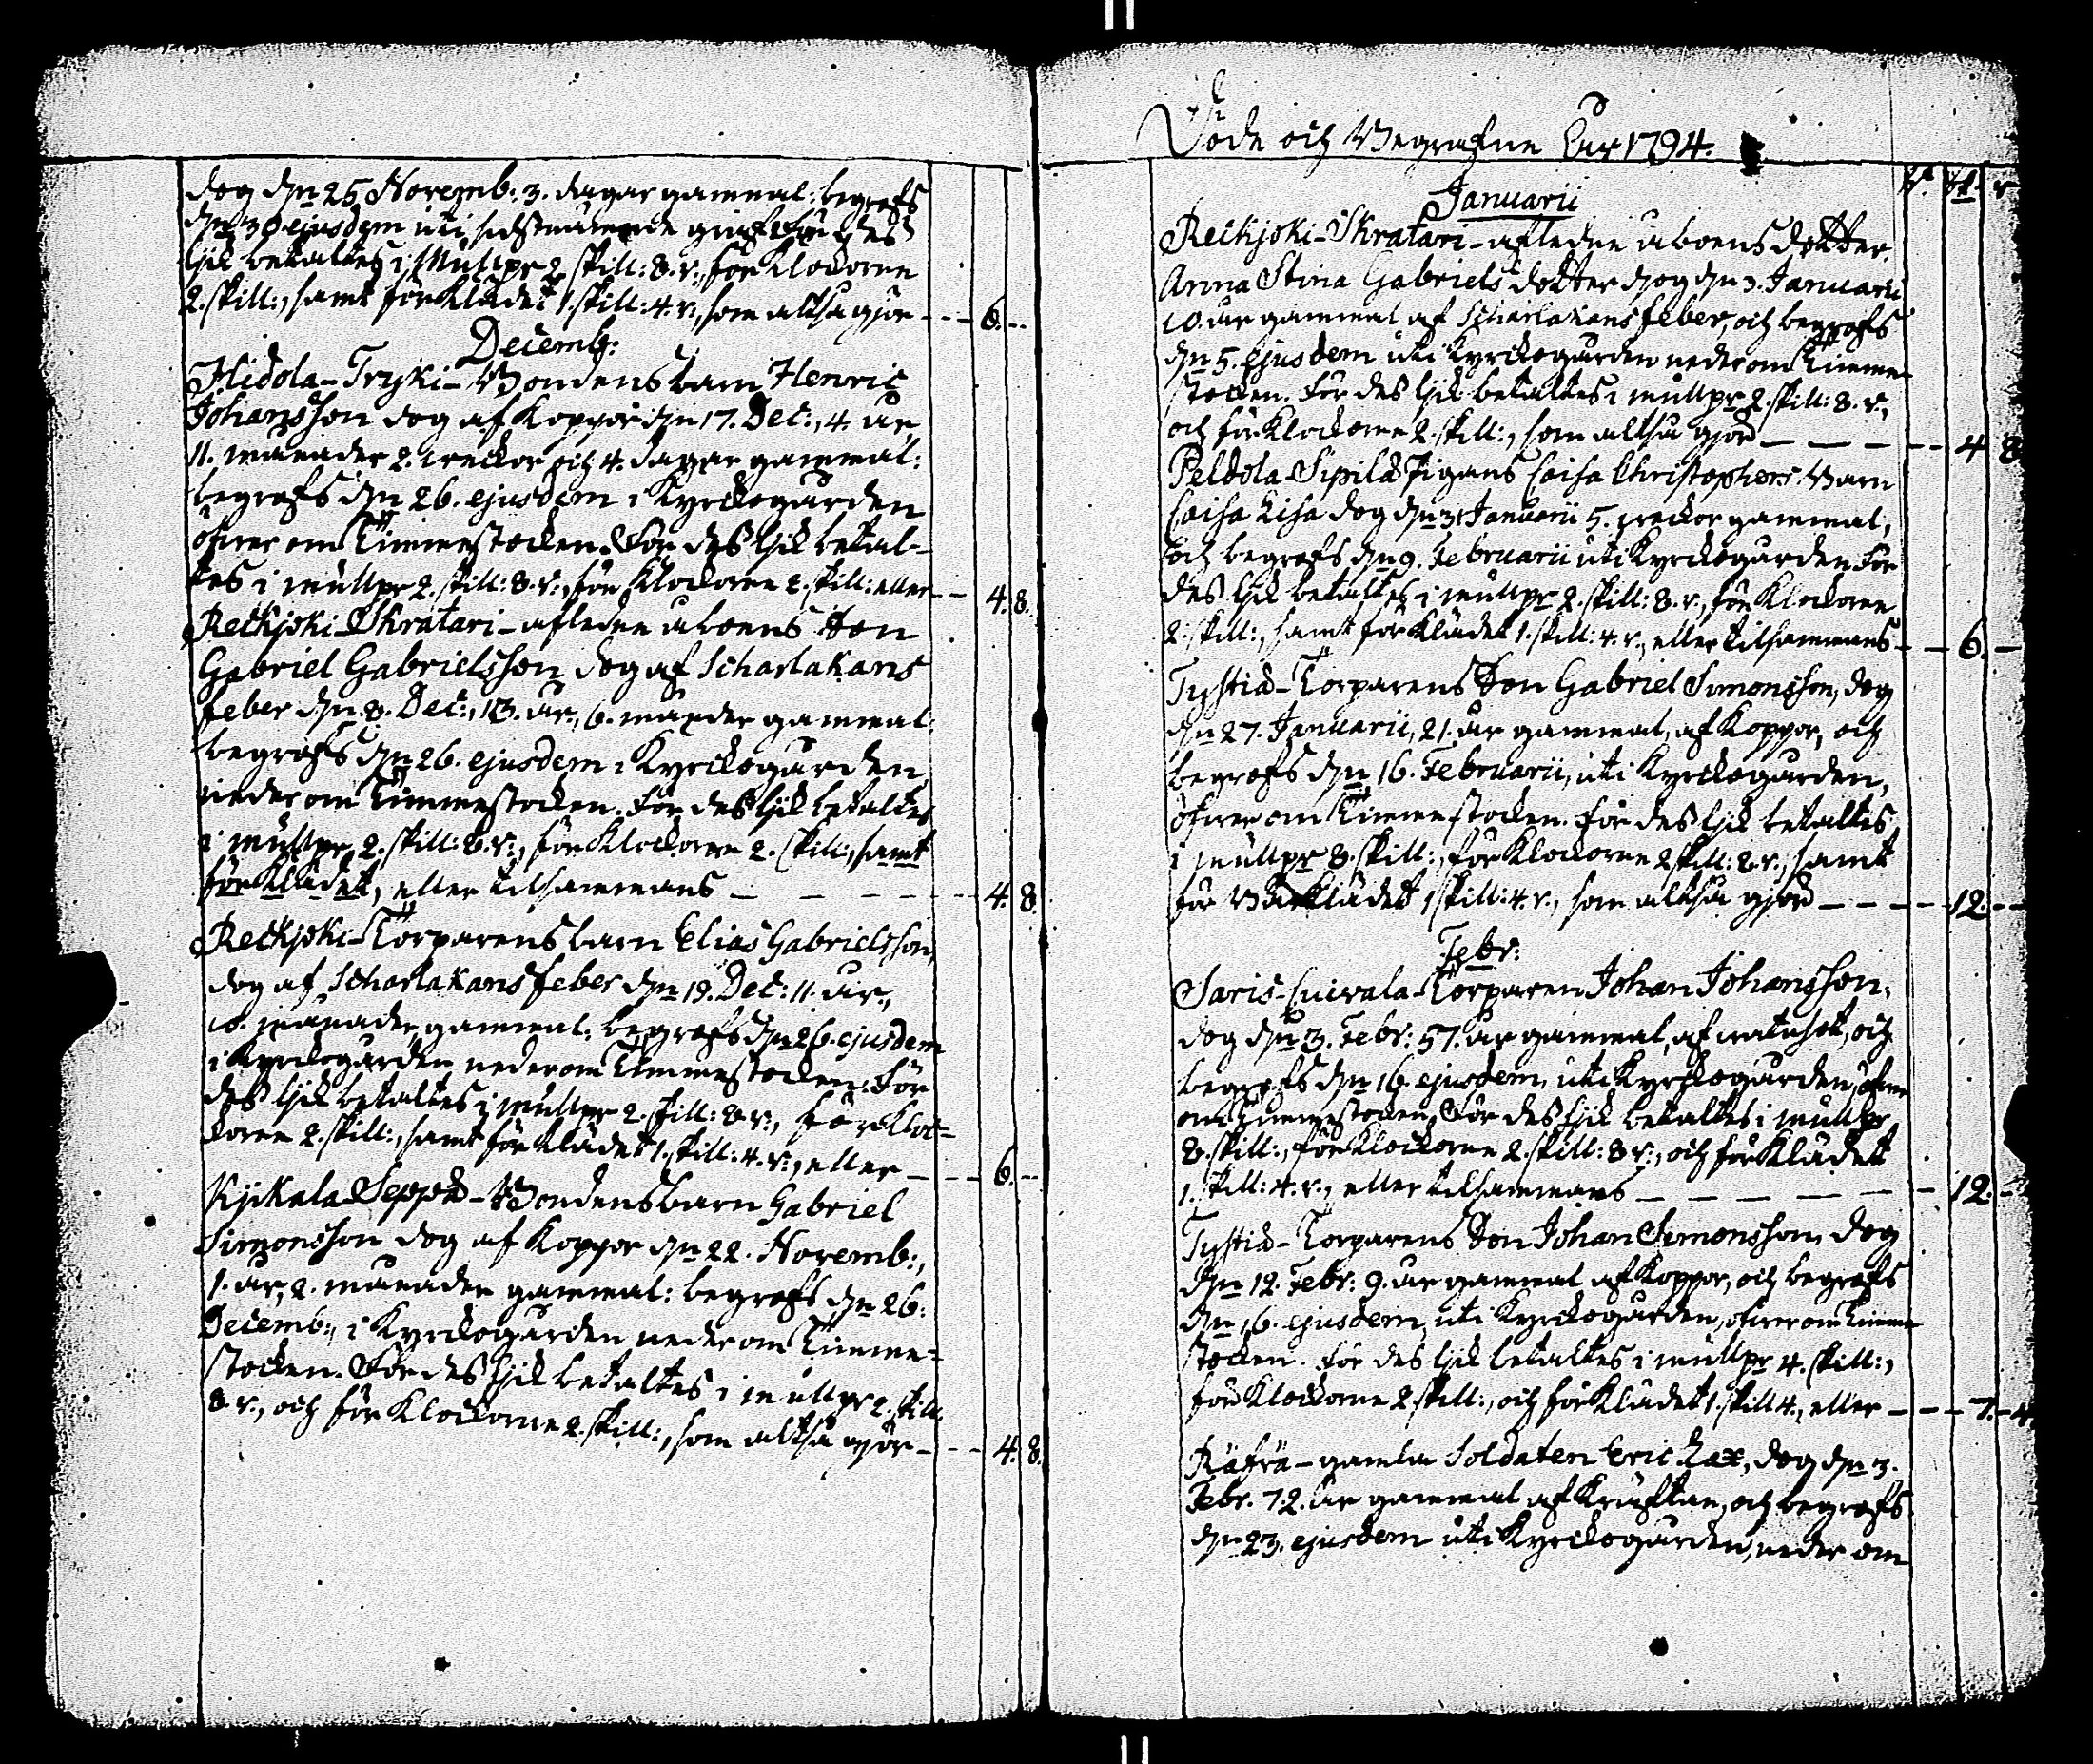 dog d:n 25 Novemb: 3. dagar gammal: begrofs
d:n 30 ejusdem uti graf. För des
lijk betaltes i Mullpr 2 skill: 8. r:, för Klockorne
2. skill:, samt för Klädet 1. skill: 4. r:, som altså gjör --- 6. --
Decemb:
Hidola-Tryki-Bondens barn Henric
Johansson dog af Koppor d:n 17. Dec:, 4. år
11. månader 2. weckor och 4. dagar gammal:
begrofs d:n 26. ejusdem i Kyrckogården
ofwer om Timmerstocken. För des lijk betal-
tes i mullpr 2. skill: 8. r:, för Klockorne 2. skill: eller -- 4. 8.
Reckjoki-Skratari-afledne åboens Son
Gabriel Gabrielsson dog af Scharlakans
feber d:n 8. Dec:, 13. år, 6. månder gammal:
begrofs d:n 26. ejusdem i Kyrckogården,
neder om Timmerstocken. För des lijk betaltes
i mullpr 2. skill: 8. r:, för Klockorne 2. skill:, samt
för Klädet, eller tilsammans — — — 4. 8.
Reckjoki-Torparens barn Elias Gabrielsson,
dog af Scharlakansfeber d:n 19. Dec: 11. år,
10. månader gammal: begrofs d:n 26. ejusdem
i Kyrckogården neder om Timmerstocken: För
des lijk betaltes i mullpr 2. skill: 8 r:, för Kloc-
korne 2. skill:, samt för Klädet 1. skill: 4. r:, eller — — 6. --
Kjikala-Seppä-Bondens barn Gabriel
Simonsson dog af Koppor d:n 22. Novemb:,
1. år, 2. månader gammal: begrofs d:n 26.
Decemb:, i Kyrckogården neder om Timmer-
stocken. För des lijk betaltes i mullpr 2. skill:
8 r:, och för Klockorne 2. skill:, som altså gjör --- 4. 8.
Döde och Begrafne Åar 1794.
Januarii
Reckjoki-Skratari-afledne åboens dotter
Anna Stina Gabriels dotter dog d:n 3. Januarii
10. år gammal af Scharlakansfeber, och begrofs
d:n 5. ejusdem uti Kyrckogården neder om Timmer
stocken. För des lijk betaltes i mullpr 2. skill: 8. r:,
och för Klockorne 2. skill:, som altså gjör — — — 4 8
Peldola-Sipilä Pigans Caisa Christophers. Barn
Caisa Lisa dog d:n 31 Januarii 5. weckor gammal,
och begrofs d:n 9. Februarii uti Kyrckogården För
des lijk betaltes i mullpr 2. skill: 8. r:, för Klockorne
2. skill:, samt för Klädet 1. skill: 4. r., eller tilsammans -- 6. --
Tystiä-Torparens Son Gabriel Simonsson, dog
d:n 27. Januarii, 21. år gammal, af Koppor, och
begrofs d:n 16. Februarii, uti Kyrckogården,
ofwer om Timmerstocken. För des lijk betaltes
i mullpr 8. skill:, för Klockorne 2 skill: 8. r., samt
för Bårklädet 1 skill: 4. r., som altså gjör — — — 12. --
Febr:
Saris-Cuivala-Torparen Johan Johansson,
dog d:n 3. Febr: 57. år gammal, af watusot, och
begrofs d:n 16. ejusdem, uti Kyrckogården, ofwer
om Timmerstocken. För des lijk betaltes i mullpr
8. skill:, för Klockorne 2. skill: 8 r:, och för Klädet
1. skill: 4. r., eller tilsammans — — — — 12. -
Tystiä-Torparens Son Johan Simonsson, dog
d:n 12. Febr: 9. år gammal af Koppor, och begrofs
d:n 16. ejusdem, uti Kyrckogården, ofwer om Timmer
stocken. För des lijk betaltes i mullpr 4. skill:,
för Klockorne 2 skill:, och för Klädet 1. skill 4., eller --- 7. - 4.
Räfrä-gamla Soldaten Eric Lax, dog d:n 3.
Febr. 72. år gammal af Kräftan, och begrofs
d:n 23. ejusdem uti Kyrckogården, neder om